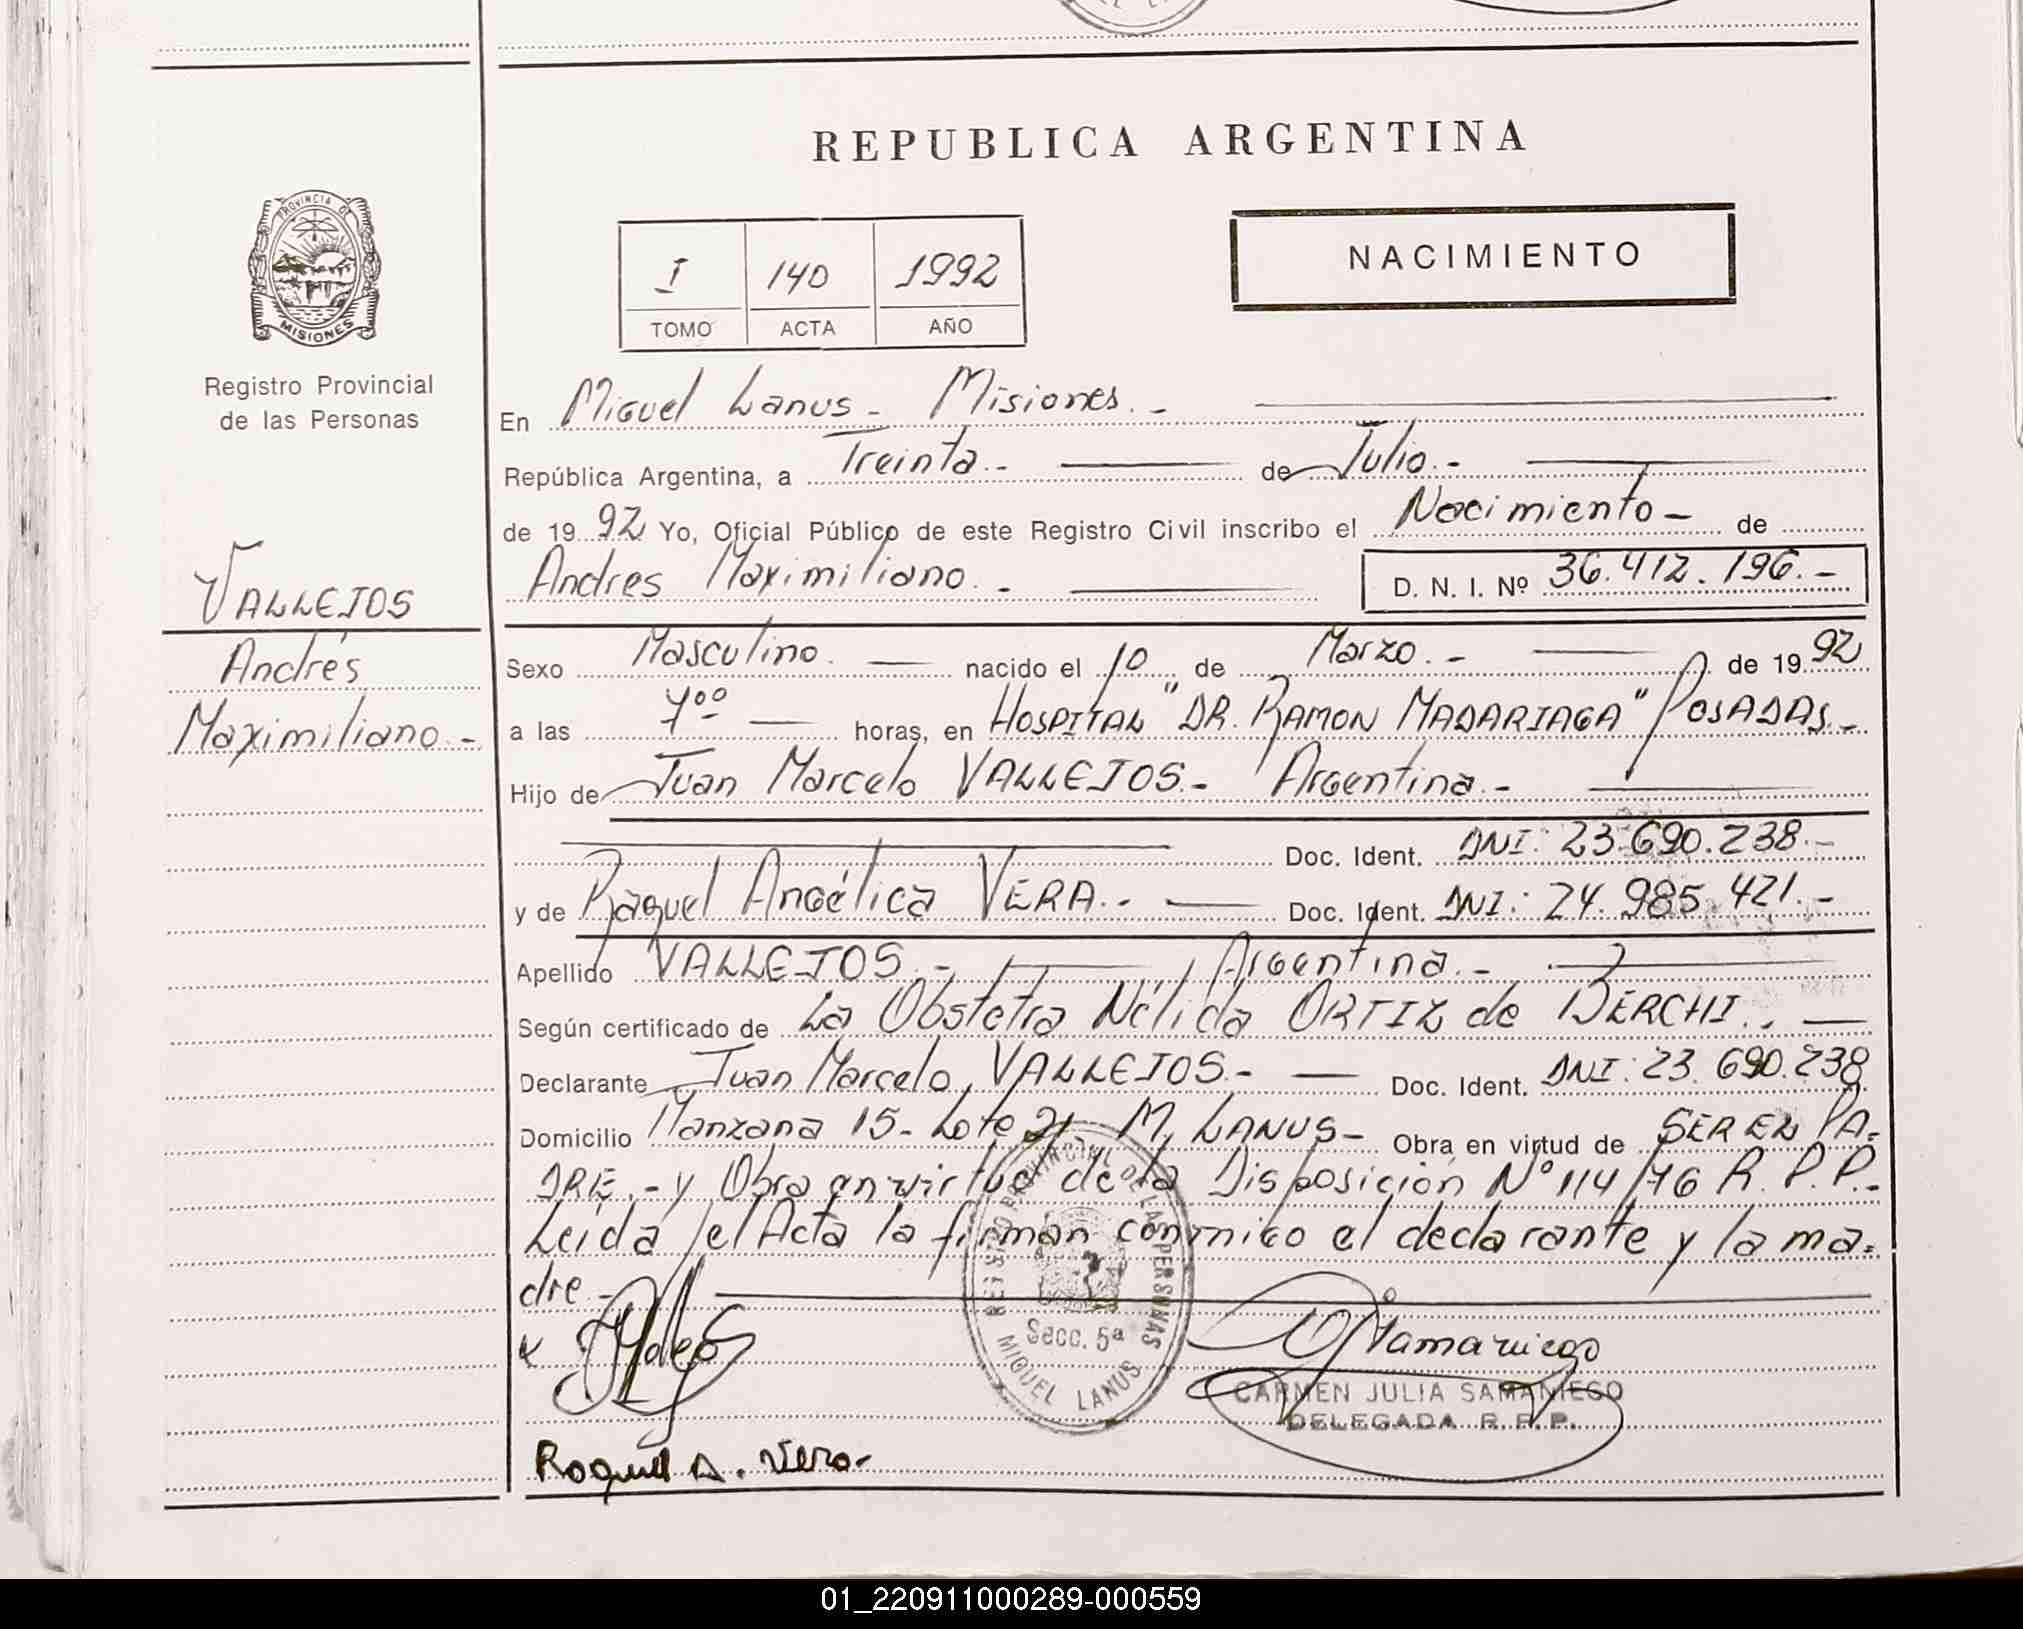 REPUBLICA ARGENTINA
PROVINCIA DE
MISIONES
Registro Provincial
de las Personas
VALLEJOS
Andrés
Maximiliano.-
I 140 1992
TOMO ACTA AÑO
NACIMIENTO
En Miguel Lanus - Misiones.-
República Argentina, a Treinta.- de Julio.-
de 1992 Yo, Oficial Público de este Registro Civil inscribo el Nacimiento - de
Andres Maximiliano.- D. N. I. Nº 36.412.196.-
Sexo Masculino. nacido el 10 de Marzo.- de 1992
a las 7ºº horas, en HOSPITAL "DR. RAMON MADARIAGA" POSADAS.-
Hijo de Juan Marcelo VALLEJOS.- Argentina.-
Doc. Ident. DNI: 23.690.238.-
y de Raquel Angélica VERA.- Doc. Ident. DNI: 24.985.421.-
Apellido VALLEJOS.- Argentina.-
Según certificado de La Obstetra Nélida ORTIZ de BERCHI..
Declarante Juan Marcelo VALLEJOS.- Doc. Ident. DNI: 23.690.238
Domicilio Manzana 15- Lote 21 M. LANUS- Obra en virtud de SER EL PA-
DRE.- y Obra en virtud de la Disposición Nº 114/76 R.P.P.-
Leída el Acta la firman conmigo el declarante y la ma-
dre.-
REGISTRO PROVINCIAL DE LAS PERSONAS
Secc. 5ª
MIGUEL LANUS
CARMEN JULIA SAMANIEGO
DELEGADA R.P.P.
Raquel A. Vera-
01_220911000289-000559